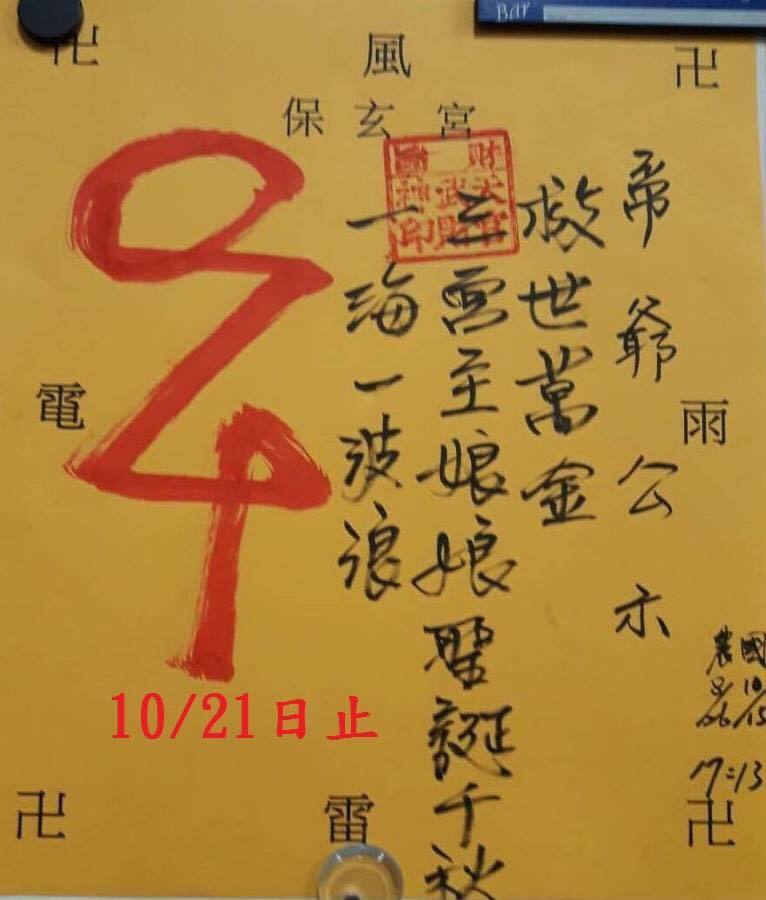 Bar
卍 風 卍
保玄宮
帝爺公示
救世萬金
三宮主娘娘聖誕千秋
一海一波浪
電
雨
農 8/26
國 10/15
17:13
10/21日止
卍 雷 卍